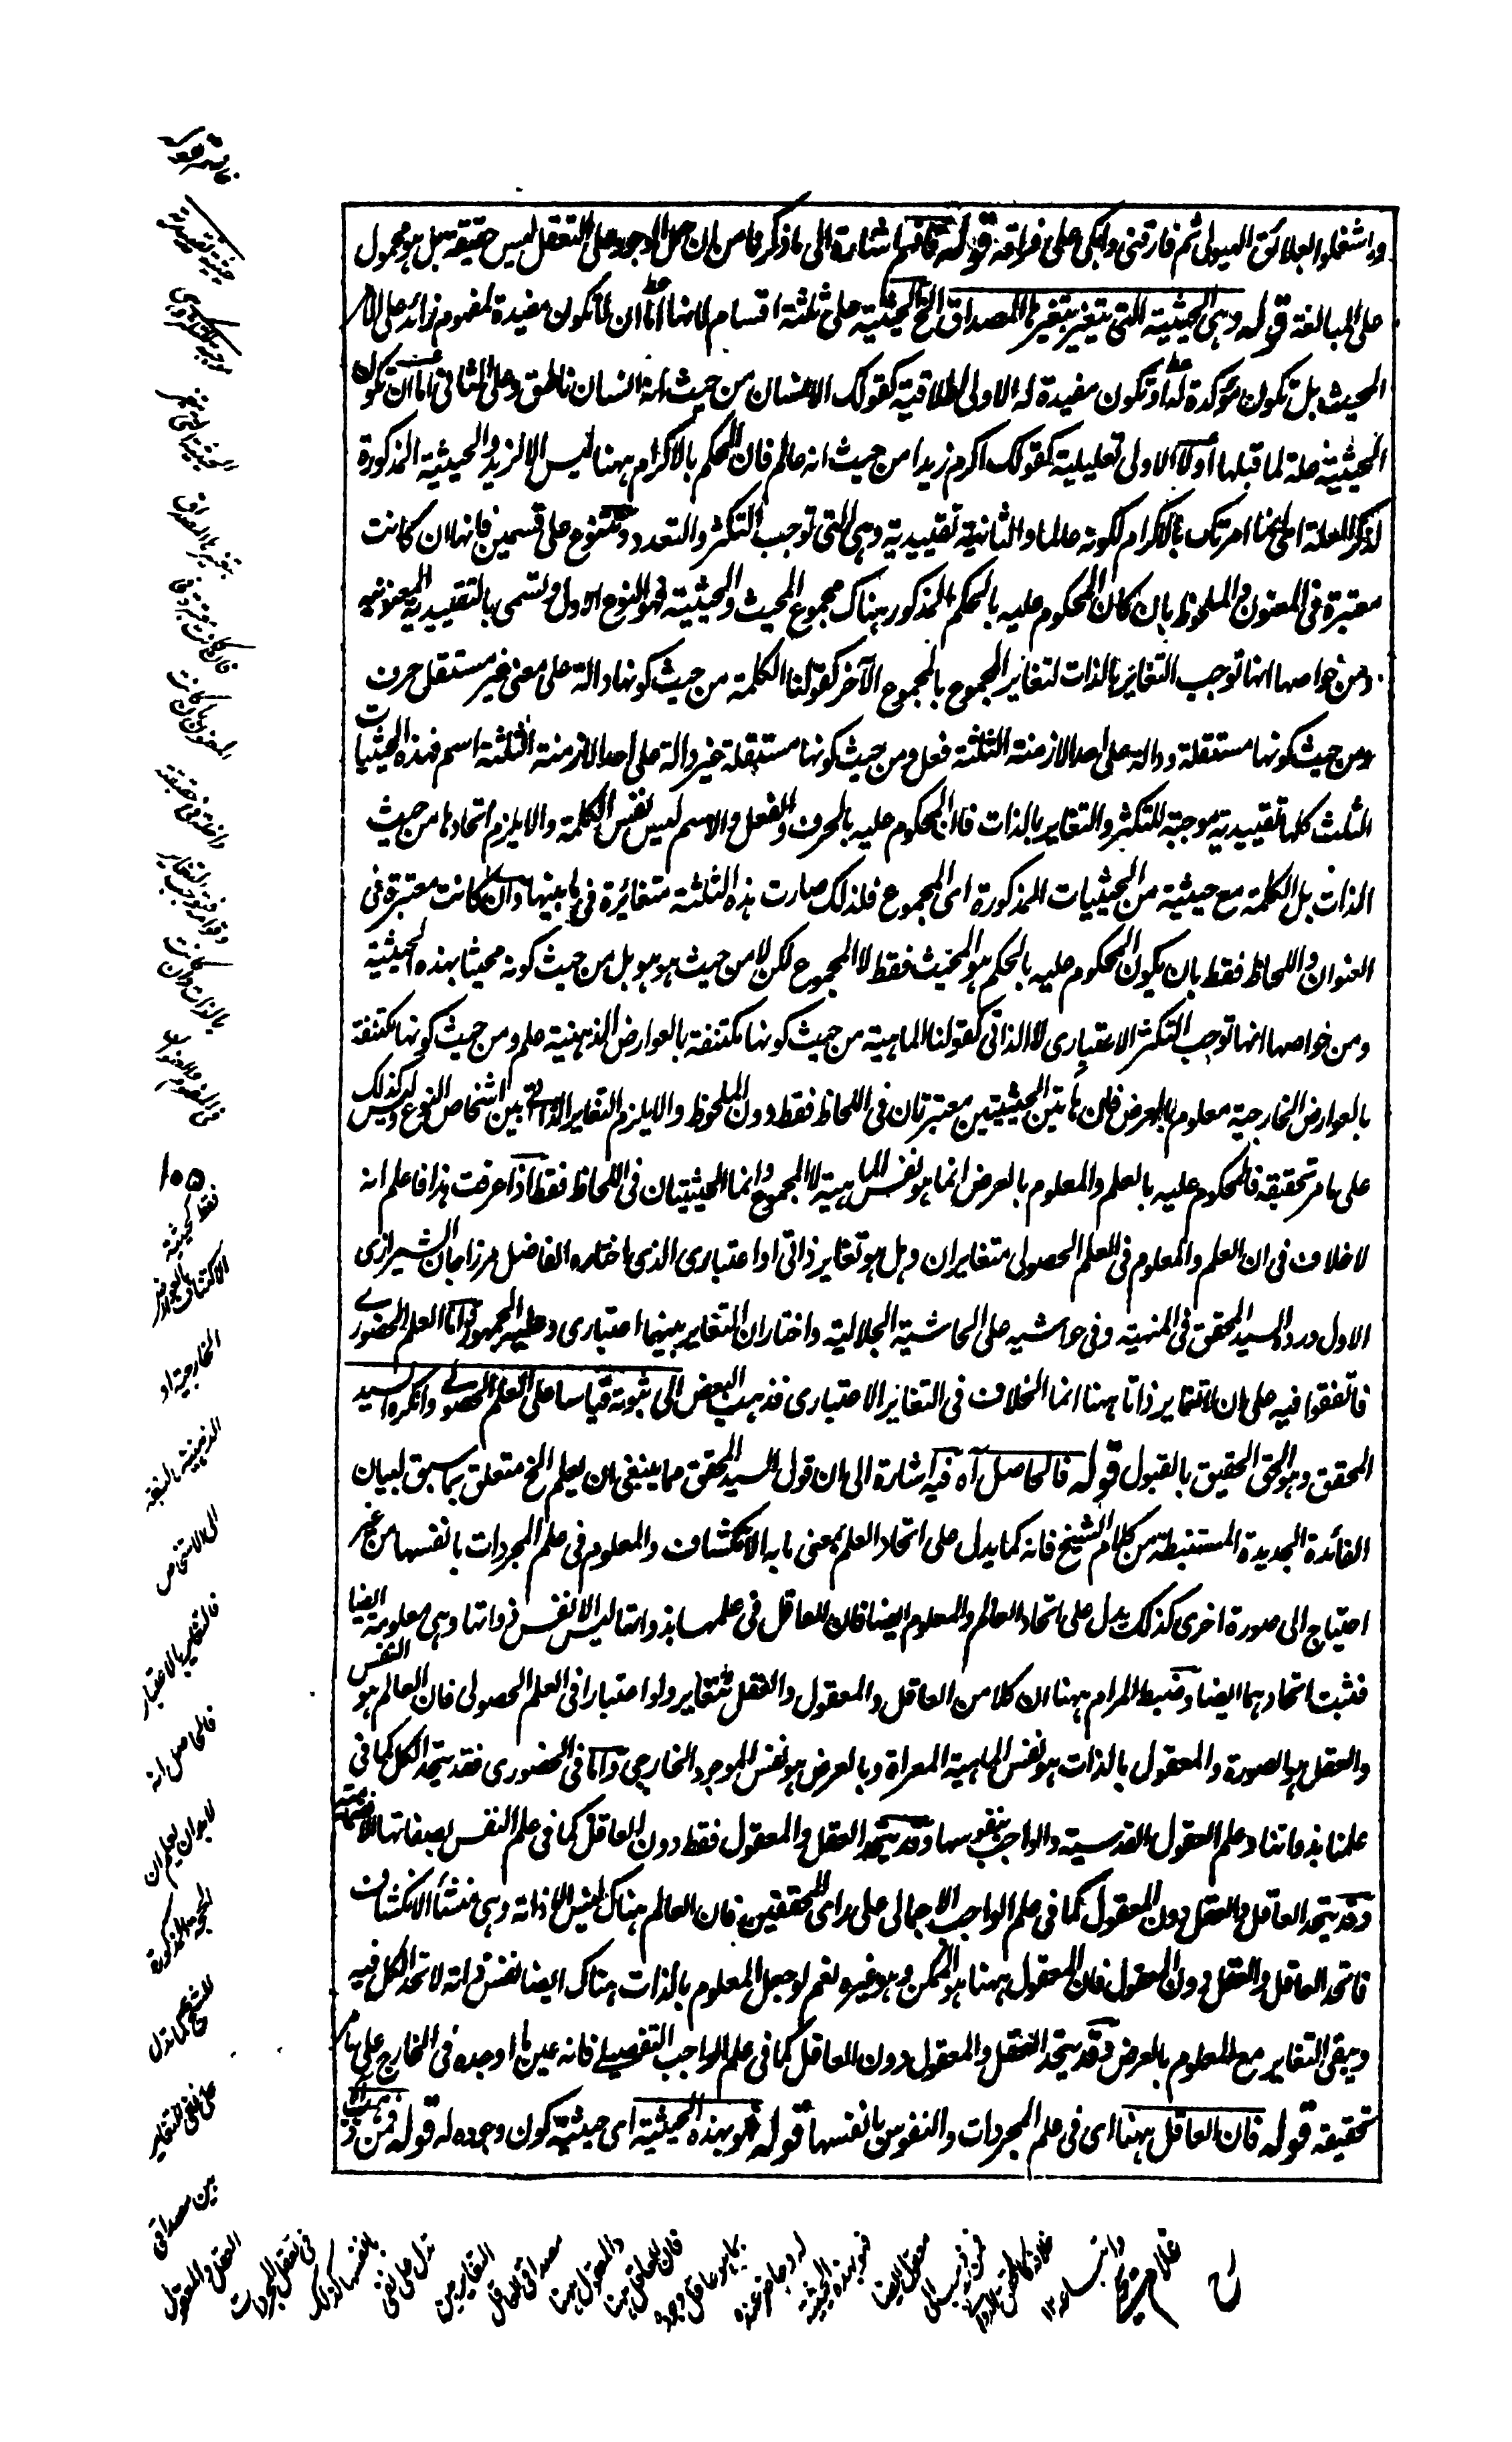 واشغلوا بعلائق الهيولى ثم فارقتنى وابكى على فراقه قوله فافهم اشارة الى ما ذكرنا من ان حمل الوجود على التعقل ليس حقيقة بل هو محمول
على المبالغة قوله وهى الحيثية التى يتغير بتغيرها المصداق الخ الحيثية على ثلثة اقسام لانها اما ان لا تكون مفيدة لمفهوم زائد على الامر
المحيث بل تكون مؤكدة له او تكون مفيدة له الاولى اطلاقية كقولك الانسان من حيث انه انسان ناطق وعلى الثانى اما ان تكون
الحيثية علة لما قبلها او لا الاولى تعليلية كقولك اكرم زيدا من حيث انه عالم فان الحكم بالاكرام ههنا ليس الا لزيد والحيثية المذكورة
لذكر العلة اى انما امرتك بالاكرام لكونه عالما والثانية تقييدية وهى التى توجب التكثر والتعدد وتتنوع على قسمين فانها ان كانت
معتبرة فى المعنون والملحوظ بان كان المحكوم عليه بالحكم المذكور هناك مجموع المحيث والحيثية فهو النوع الاول وتسمى بالتقييدية المعنونية
ومن خواصها انها توجب التغاير بالذات لتغاير المجموع بالمجموع الآخر كقولنا الكلمة من حيث كونها دالة على معنى غير مستقل حرف
ومن حيث كونها مستقلة ودالة على احد الازمنة الثلثة فعل ومن حيث كونها مستقلة غير دالة على احد الازمنة الثلثة اسم فهذه الحيثيات
الثلث كلها تقييدية موجبة للتكثر والتغاير بالذات فان المحكوم عليه بالحرف والفعل والاسم ليس نفس الكلمة والا يلزم اتحادها من حيث
الذات بل الكلمة مع حيثية من الحيثيات المذكورة اى المجموع فلذلك صارت هذه الثلثة متغائرة فى ما بينها وان كانت معتبرة فى
العنوان واللحاظ فقط بان يكون المحكوم عليه بالحكم هو المحيث فقط لا المجموع لكن لا من حيث هو هو بل من حيث كونه محيثا بهذه الحيثية
ومن خواصها انها توجب التكثر الاعتبارى لا الذاتى كقولنا الماهية من حيث كونها مكتنفة بالعوارض الذهنية علم ومن حيث كونها مكتنفة
بالعوارض الخارجية معلوم بالعرض فان هاتين الحيثيتين معتبرتان فى اللحاظ فقط دون الملحوظ والا يلزم التغاير الذاتى بين اشخاص النوع وليس كذلك
على ما مر تحقيقه فالمحكوم عليه بالعلم والمعلوم بالعرض انما هو نفس الماهية لا المجموع وانما الحيثيتان فى اللحاظ فقط اذا عرفت هذا فاعلم انه
لا خلاف فى ان العلم والمعلوم فى العلم الحصولى متغايران وهل هو تغاير ذاتى او اعتبارى الذى اختاره الفاضل مرزا جان الشيرازى
الاول ورده السيد المحقق فى المنهية وفى حواشيه على الحاشية الجلالية واختار ان التغاير بينهما اعتبارى وعليه الجمهور واما العلم الحضورى
فاتفقوا فيه على ان لا تغاير ذاتا ههنا انما الخلاف فى التغاير الاعتبارى فذهب البعض الى ثبوته قياسا على العلم الحصولى وانكره السيد
المحقق وهو الحق الحقيق بالقبول قوله فالحاصل آه فيه اشارة الى ان قول السيد المحقق مما ينبغى ان يعلم الخ متعلق بما سبق لبيان
الفائدة الجديدة المستنبطة من كلام الشيخ فانه كما يدل على اتحاد العلم بمعنى ما به الانكشاف والمعلوم فى علم المجردات بانفسها من غير
احتياج الى صورة اخرى كذلك يدل على اتحاد العالم والمعلوم ايضا فان العاقل فى علمها بذواتها ليس الا نفس ذواتها وهى معلومة ايضا
فثبت اتحادهما ايضا وضبط المرام ههنا ان كلا من العاقل والمعقول والعقل متغاير ولو اعتبارا فى العلم الحصولى فان العالم هو النفس
والعقل هو الصورة والمعقول بالذات هو نفس الماهية المعراة وبالعرض هو نفس الموجود الخارجى واما فى الحضورى فقد يتحد الكل كما فى
علمنا بذواتنا وعلم العقول القدسية والواجب بنفوسها وقد يتحد العقل والمعقول فقط دون العاقل كما فى علم النفس بصفاتها الانضمامية
وقد يتحد العاقل والعقل دون المعقول كما فى علم الواجب الاجمالى على راى المحققين فان العالم هناك ليس الا ذاته وهى منشأ الانكشاف
فاتحد العاقل والعقل دون المعقول فان المعقول ههنا هو الممكن وهو غيره نعم لو جعل المعلوم بالذات هناك ايضا نفس ذاته لاتحد الكل فيه
ويبقى التغاير مع المعلوم بالعرض وقد يتحد العقل والمعقول دون العاقل كما فى علم الواجب التفصيلى فانه عين ما اوجده فى الخارج على ما مر
تحقيقه قوله فان العاقل ههنا اى فى علم المجردات والنفوس بانفسها قوله فهو بهذه الحيثية اى حيثية كون وجوده له قوله فمن ذهب
فقط كحيثية
الاكتناف بالعوارض
الخارجية او
الذهنية بالنسبة
الى الاشخاص
فالتغاير بالاعتبار
فالحاصل انه
لا بد ان يعلم ان
الحجة المذكورة
للشيخ كما تدل
على نفى التغاير
بين مصداقى
العقل والمعقول
فى تعقل المجردات
بانفسها كذلك
تدل على نفى
التغاير بين
مصداقى العاقل
والمعقول ههنا
فان العاقل ههنا